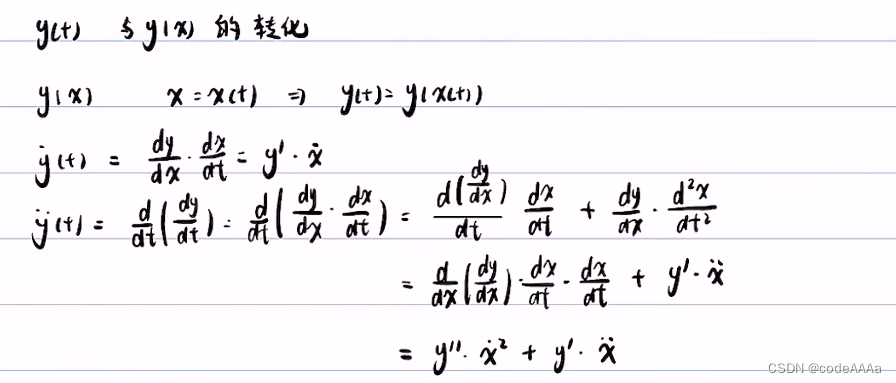 y(t) 与 y(x) 的转化
y(x) x = x(t) ⇒ y(t) = y(x(t))
ẏ(t) = dy/dx · dx/dt = y' · ẋ
ÿ(t) = d/dt(dy/dt) = d/dt(dy/dx · dx/dt) = d(dy/dx)/dt dx/dt + dy/dx · d²x/dt²
= d/dx(dy/dx) · dx/dt · dx/dt + y' · ẍ
= y'' · ẋ² + y' · ẍ
CSDN @codeAAAa